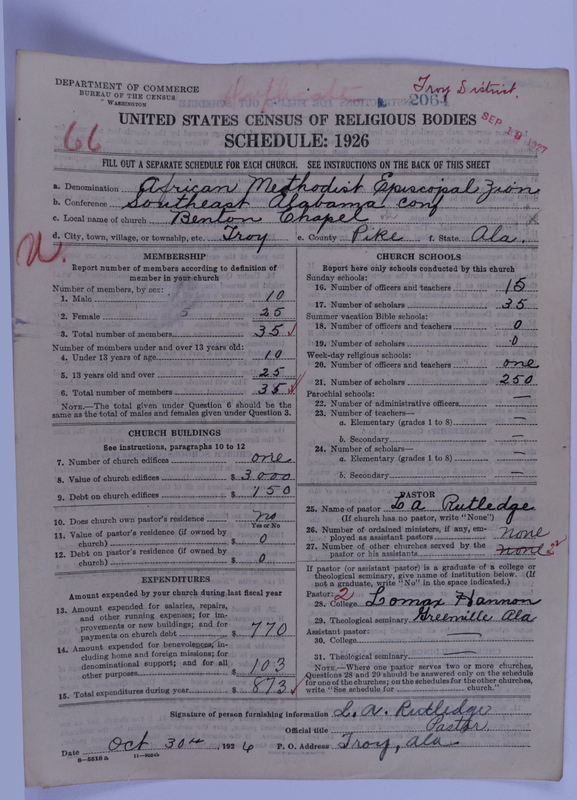 DEPARTMENT OF COMMERCE
BUREAU OF THE CENSUS
WASHINGTON
Troy District.
2064
SEP 19 1927
UNITED STATES CENSUS OF RELIGIOUS BODIES
66
SCHEDULE: 1926
FILL OUT A SEPARATE SCHEDULE FOR EACH CHURCH. SEE INSTRUCTIONS ON THE BACK OF THIS SHEET
a. Denomination African Methodist Episcopal Zion
b. Conference Southeast Alabama Conf
c. Local name of church Benton Chapel
d. City, town, village, or township, etc. Troy e. County Pike f. State Ala.
W.
MEMBERSHIP
Report number of members according to definition of
member in your church
Number of members, by sex:
1. Male 10
2. Female 25
3. Total number of members 35
Number of members under and over 13 years old:
4. Under 13 years of age 10
5. 13 years old and over 25
6. Total number of members 35
NOTE.—The total given under Question 6 should be the
same as the total of males and females given under Question 3.
CHURCH BUILDINGS
See instructions, paragraphs 10 to 12
7. Number of church edifices one
8. Value of church edifices $ 3000
9. Debt on church edifices $ 150
10. Does church own pastor's residence no
Yes or No
11. Value of pastor's residence (if owned by
church) $ 0
12. Debt on pastor's residence (if owned by
church) $ 0
EXPENDITURES
Amount expended by your church during last fiscal year
13. Amount expended for salaries, repairs,
and other running expenses; for im-
provements or new buildings; and for
payments on church debt $ 770
14. Amount expended for benevolences, in-
cluding home and foreign missions; for
denominational support; and for all
other purposes $ 103
15. Total expenditures during year $ 873
CHURCH SCHOOLS
Report here only schools conducted by this church
Sunday schools:
16. Number of officers and teachers 15
17. Number of scholars 35
Summer vacation Bible schools:
18. Number of officers and teachers 0
19. Number of scholars 0
Week-day religious schools:
20. Number of officers and teachers one
21. Number of scholars 250
Parochial schools:
22. Number of administrative officers —
23. Number of teachers—
a. Elementary (grades 1 to 8) —
b. Secondary —
24. Number of scholars—
a. Elementary (grades 1 to 8) —
b. Secondary —
PASTOR
25. Name of pastor L a Rutledge
(If church has no pastor, write "None")
26. Number of ordained ministers, if any, em-
ployed as assistant pastors none
27. Number of other churches served by the
pastor or his assistants none
If pastor (or assistant pastor) is a graduate of a college or
theological seminary, give name of institution below. (If
not a graduate, write "No" in the space indicated.)
Pastor: 2
28. College Lomax Hannon
29. Theological seminary Greenville Ala
Assistant pastor:
30. College —
31. Theological seminary —
NOTE.—Where one pastor serves two or more churches,
Questions 28 and 29 should be answered only on the schedule
for one of the churches; on the schedules for the other churches,
write "See schedule for church."
Signature of person furnishing information L. A. Rutledge
Official title Pastor
Date Oct 30th, 1926 P. O. Address Troy, Ala
8—5516a 11—9051b